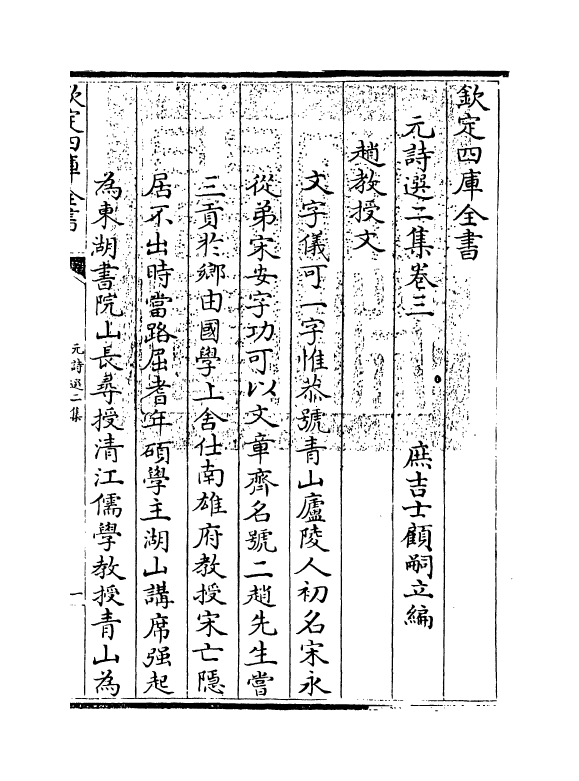 欽定四庫全書
元詩選二集卷三
庶吉士顧嗣立編
趙教授文
文字儀可一字惟恭號青山廬陵人初名宋永
從弟宋安字功可以文章齊名號二趙先生嘗
三貢於鄉由國學上舍仕南雄府教授宋亡隱
居不出時當路屈耆年碩學主湖山講席强起
為東湖書院山長尋授清江儒學教授青山為
欽定四庫全書
元詩選二集
一